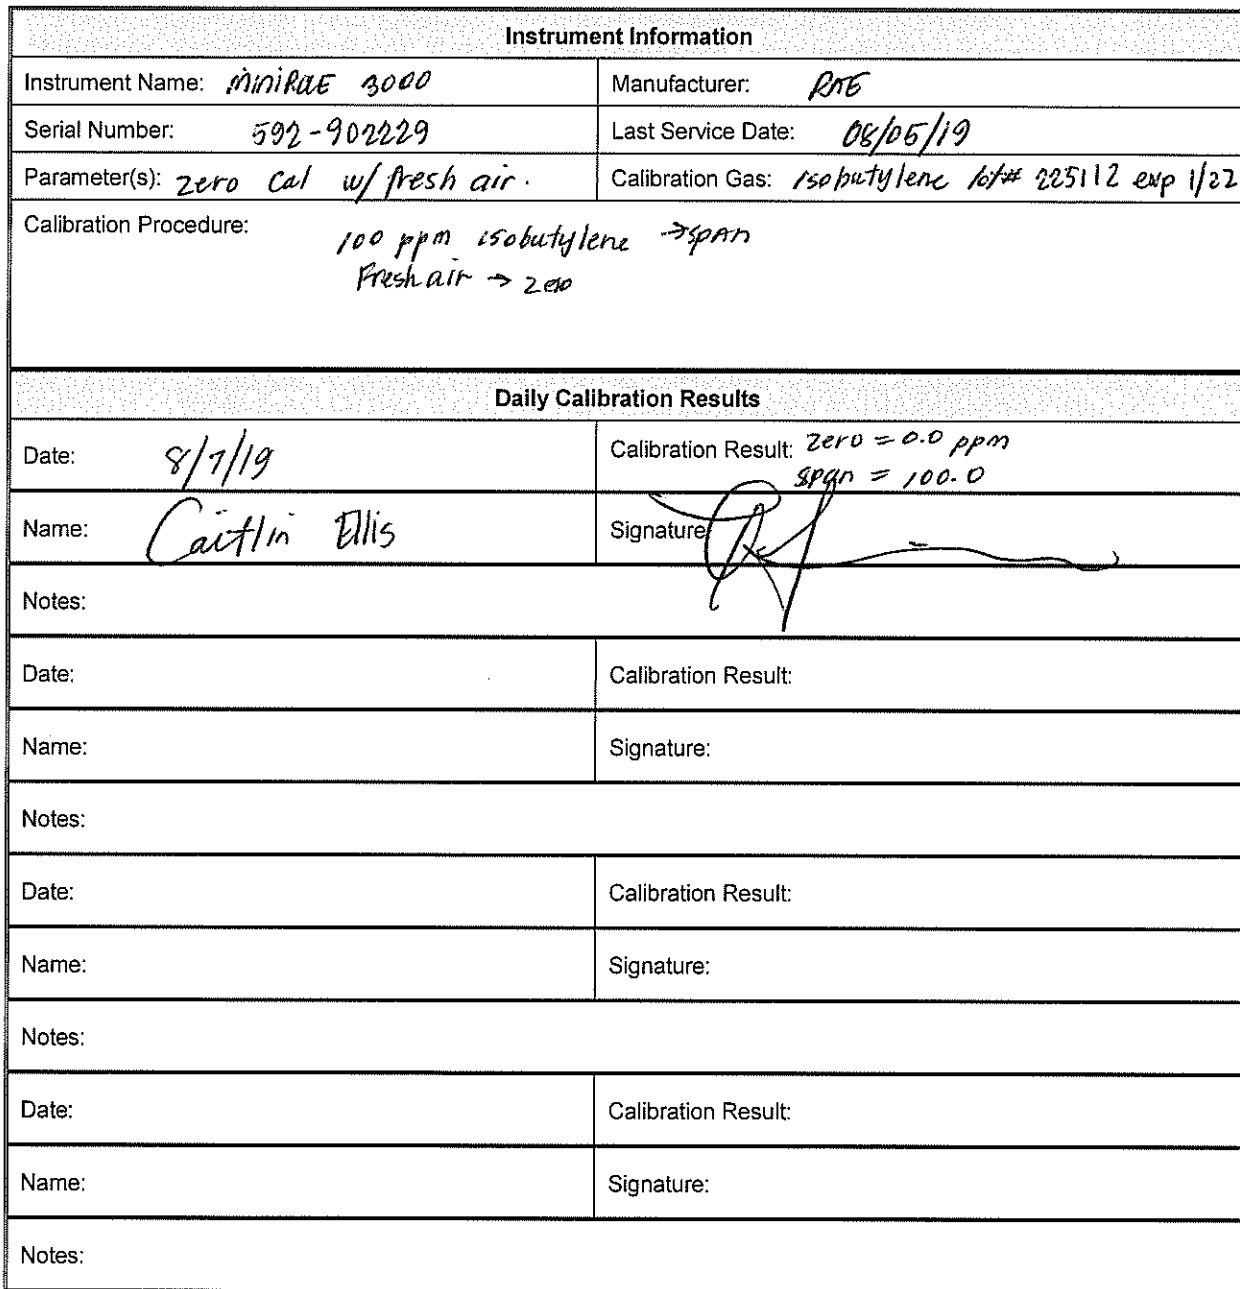 Instrument Information
Instrument Name: MiniRAE 3000
Manufacturer: RAE
Serial Number: 592-902229
Last Service Date: 08/05/19
Parameter(s): zero Cal w/ fresh air.
Calibration Gas: Isobutylene lot# 225112 exp 1/22
Calibration Procedure: 100 ppm isobutylene → span
Fresh air → zero
Daily Calibration Results
Date: 8/7/19
Calibration Result: zero = 0.0 ppm
span = 100.0
Name: Caitlin Ellis
Signature:
Notes:
Date:
Calibration Result:
Name:
Signature:
Notes:
Date:
Calibration Result:
Name:
Signature:
Notes:
Date:
Calibration Result:
Name:
Signature:
Notes: